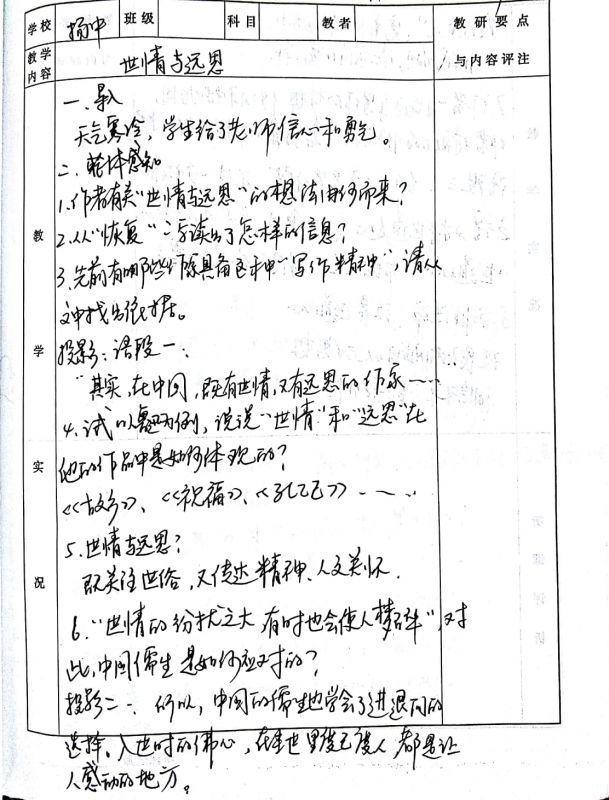 学校 扬中 班级 科目 教者 教研要点
教学内容 世情与远思 与内容评注
教学实况
一、导入
天气寒冷,学生给了老师信心和勇气。
二、整体感知
1.作者有关“世情与远思”的想法由何而来?
2.从“恢复”一词读出了怎样的信息?
3.先前有哪些作家具备这种“写作精神”,请从
文中找出依据。
投影:语段一:
“其实,在中国,既有世情,又有远思的作家……
4.试以鲁迅为例,说说“世情”和“远思”在
他的作品中是如何体现的?
《故乡》、《祝福》、《孔乙己》……
5.世情与远思?
既关注世俗,又传达精神、人文关怀.
6.“世情的纷扰之大,有时也会使人梦碎”,对
此,中国儒生是如何应对的?
投影二、所以,中国的儒生也学会了进退间的
选择、入世时的佛心,在本世里度己度人,都是让
人感动的地方。